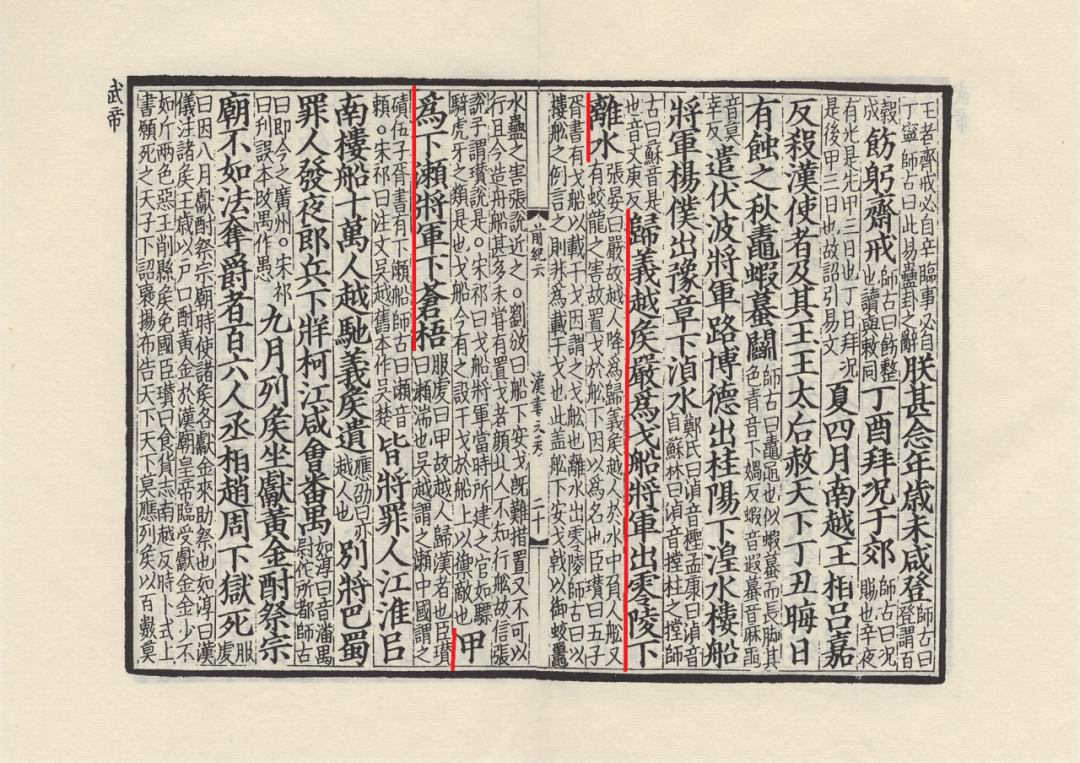 王者齋戒必自辛臨事必自
丁寧師古曰此易蠱卦之辭
朕甚念年歲未咸登
師古曰
登謂百
榖
成
飭躬齋戒
師古曰飭整
也讀與敕同
丁酉拜況于郊
師古曰況
賜也辛夜
有光是先甲三日也丁日拜況
是後甲三日也故詔引易文
夏四月南越王相呂嘉
反殺漢使者及其王王太后赦天下丁丑晦日
有蝕之秋鼃蝦蟇鬭
師古曰鼃黽也似蝦蟇而長脚其
色青音下媧反蝦音遐蟇音麻黽
音莫
幸反
遣伏波將軍路博德出桂陽下湟水樓船
將軍楊僕出豫章下湞水
鄭氏曰湞音檉孟康曰湞音
自蘇林曰湞音摚柱之摚師
古曰蘇音是
也音丈庚反
歸義越矦嚴爲戈船將軍出零陵下
離水
張晏曰嚴故越人降爲歸義矦越人於水中負人船又
有蛟龍之害故置戈於船下因以爲名也臣瓚曰五子
胥書有戈船以載干戈因謂之戈船也離水出零陵師古曰以
樓船之例言之則非爲載干戈也此盖船下安戈戟以御蛟鼉
前紀六
漢書六
二十
水蟲之害張說近之。劉攽曰船下安戈旣難措置又不可以
行且今造舟船甚多未甞有置戈者顔北人不知行船故信張
說予謂瓚說是。宋祁曰戈船將軍當時所建之官如驃
騎虎牙之類是也戈船今有之設干戈於船上以禦敵也
甲
爲下瀨將軍下蒼梧
服虔曰甲故越人歸漢者也臣瓚
曰瀨湍也吳越謂之瀨中國謂之
磧伍子胥書有下瀨船師古曰瀨音
賴。朱祁曰注文吳越舊本作吳楚
皆將罪人江淮㠯
南樓船十萬人越馳義矦遺
應劭曰亦
越人也
別將巴蜀
罪人發夜郎兵下牂柯江咸會番禺
如淳曰音潘禺
尉佗所都師古
曰即今之廣州。宋祁
曰刋誤本故禺作愚
九月列矦坐獻黃金酎祭宗
廟不如法奪爵者百六人丞相趙周下獄死
服
虔
曰因八月獻酎祭宗廟時使諸矦各獻金來助祭也如淳曰漢
儀注諸矦王歲以户口酎黃金於漢廟皇帝臨受獻金金少不
如斤兩色惡王削縣矦免國臣瓚曰食貨志南越反時卜式上
書願死之天子下詔襃揚布告天下天下莫應列矦以百數莫
武帝